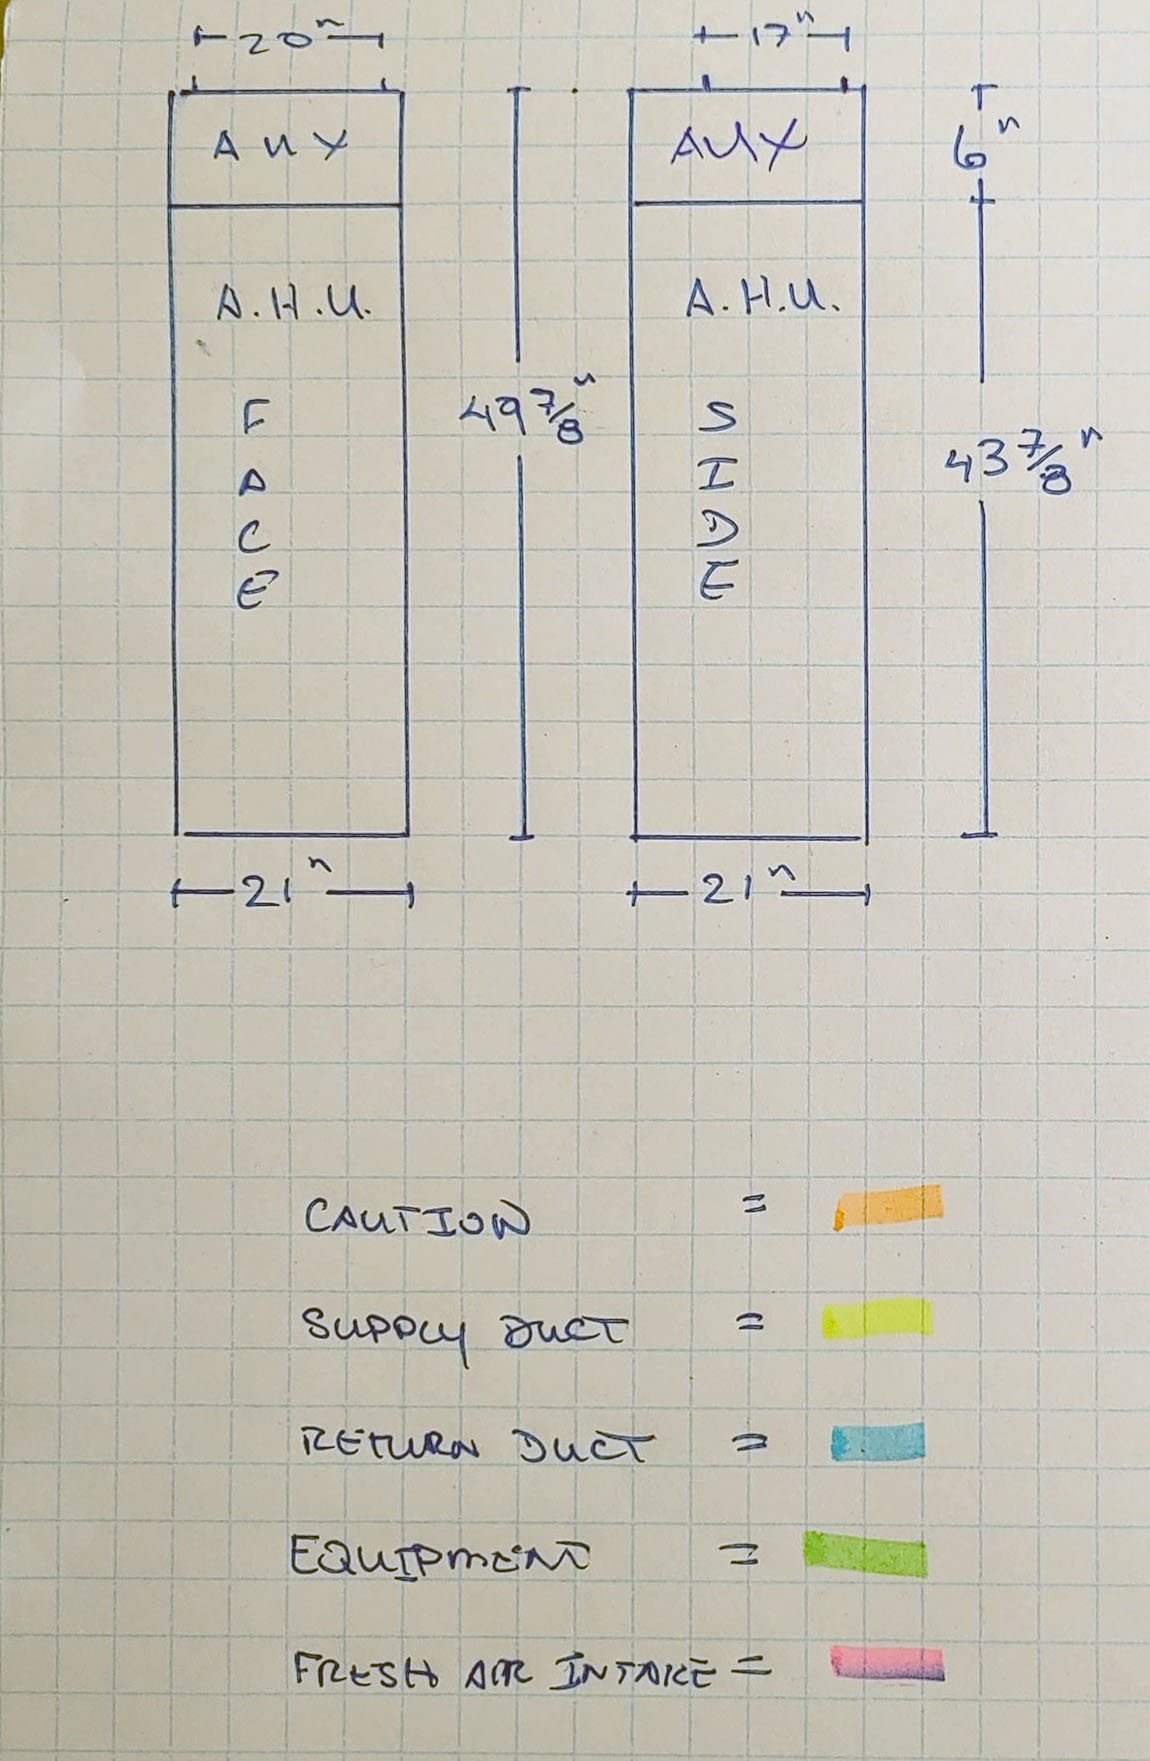 20"
17"
AUX
AUX
6"
A.H.U.
A.H.U.
FACE
49 7/8"
SIDE
43 7/8"
21"
21"
CAUTION =
SUPPLY DUCT =
RETURN DUCT =
EQUIPMENT =
FRESH AIR INTAKE =